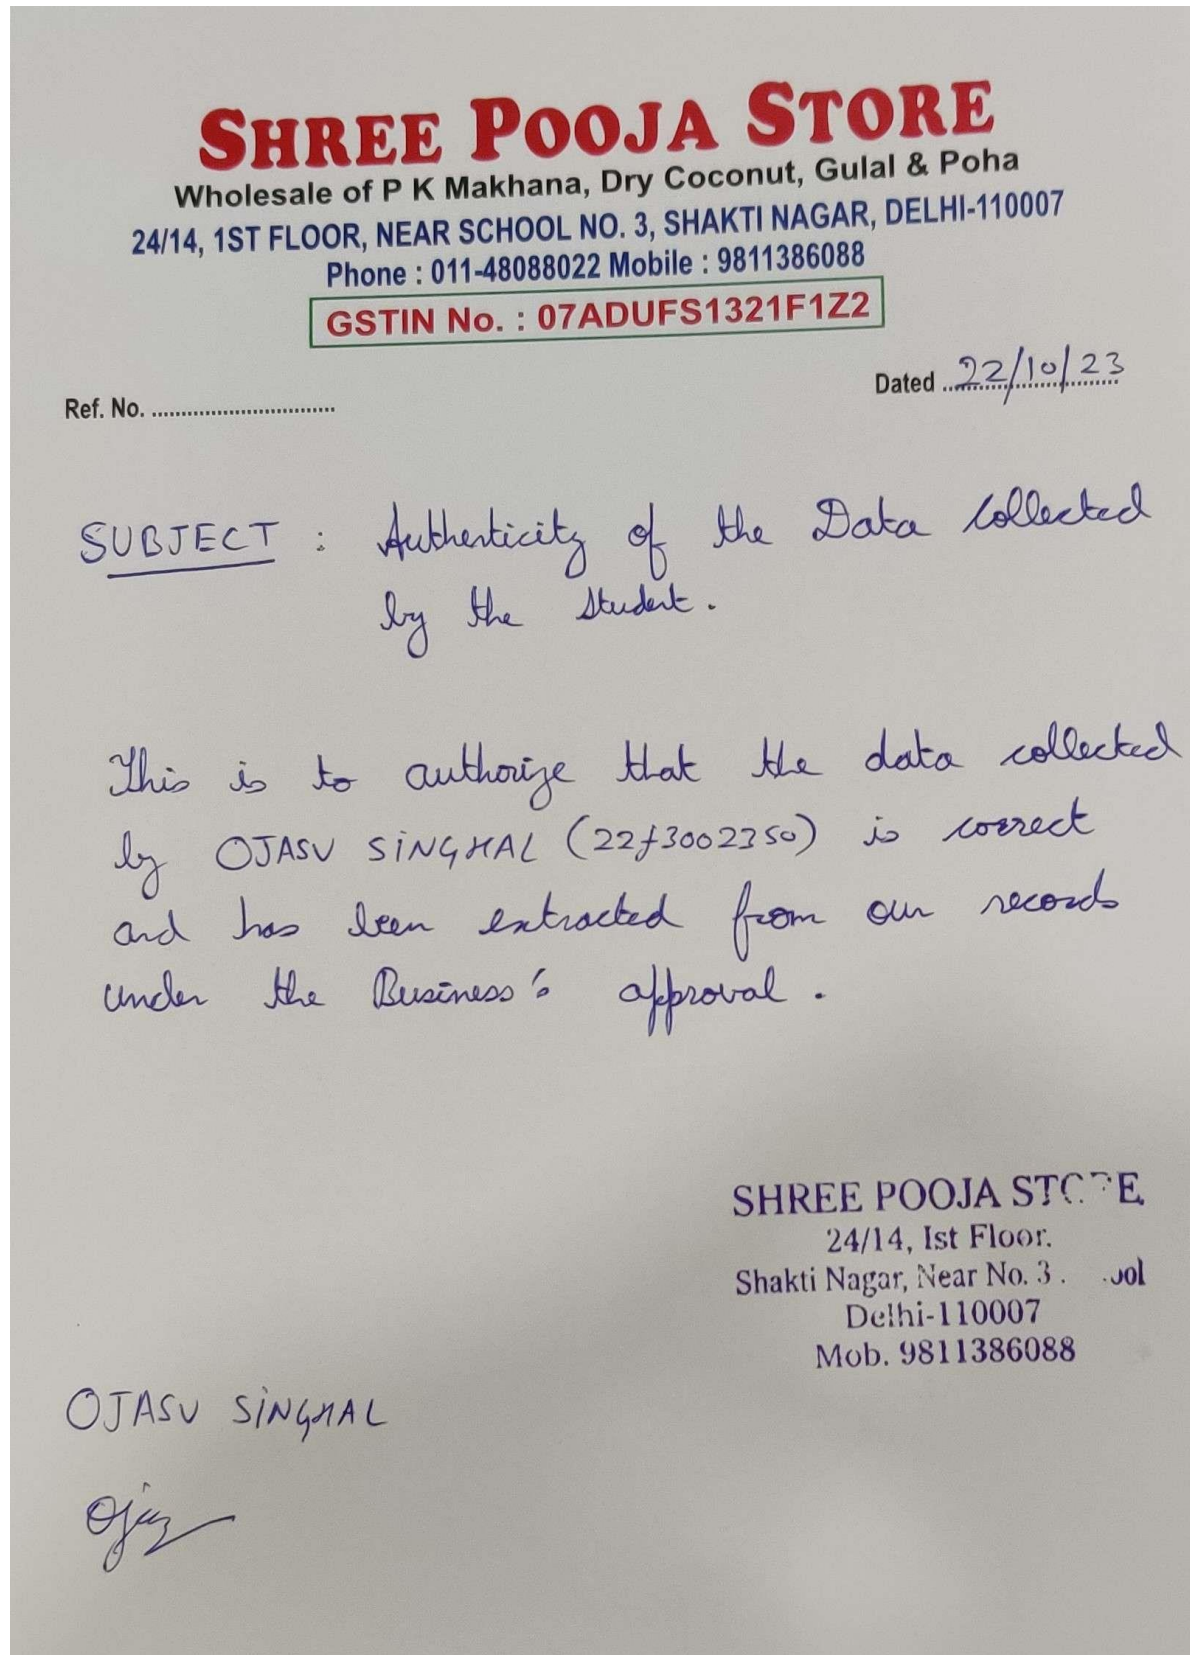 SHREE POOJA STORE
Wholesale of P K Makhana, Dry Coconut, Gulal & Poha
24/14, 1ST FLOOR, NEAR SCHOOL NO. 3, SHAKTI NAGAR, DELHI-110007
Phone : 011-48088022 Mobile : 9811386088
GSTIN No. : 07ADUFS1321F1Z2
Dated 22/10/23
Ref. No. ..............................
SUBJECT : Authenticity of the Data collected
by the student.
This is to authorize that the data collected
by OJASV SINGHAL (22f3002350) is correct
and has been extracted from our records
under the Business's approval.
SHREE POOJA
24/14, Ist Floor.
Shakti Nagar, Near No. 3
Delhi-110007
Mob. 9811386088
OJASV SINGHAL